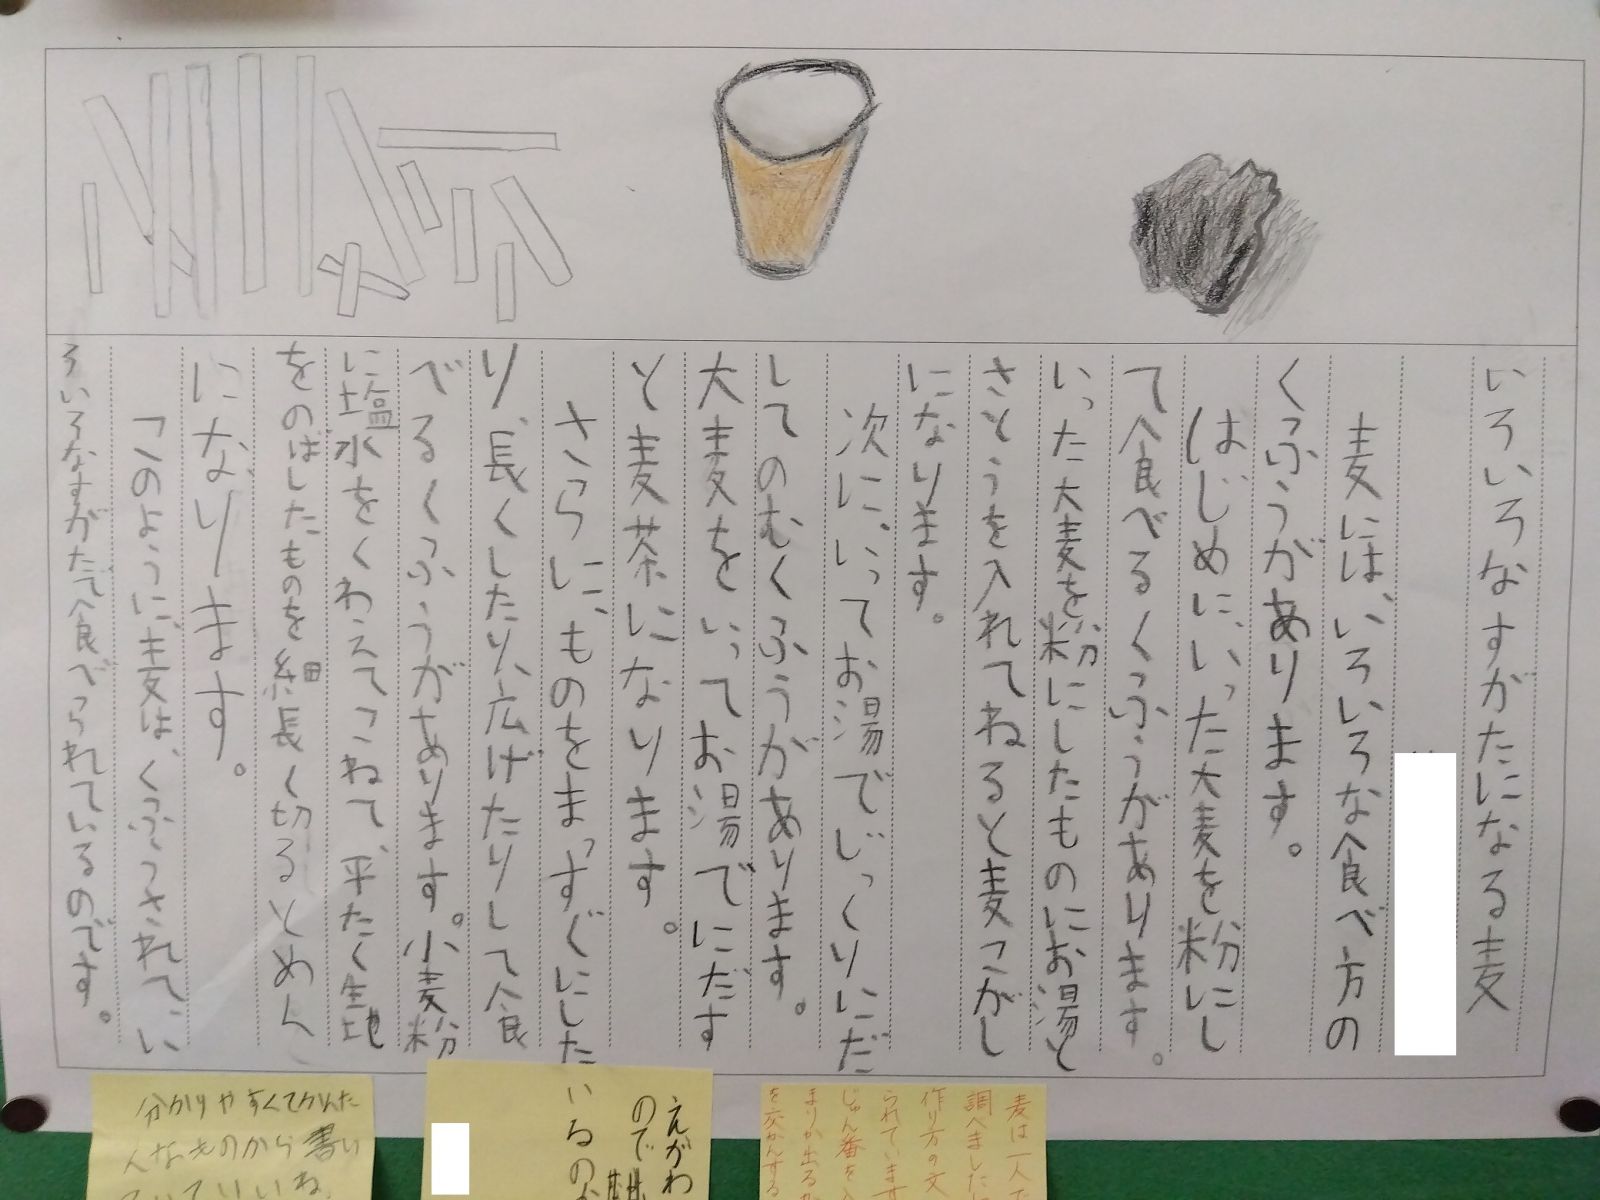 いろいろなすがたになる麦
麦には、いろいろな食べ方の
くふうがあります。
はじめに、いった大麦を粉にし
て食べるくふうがあります。
いった大麦を粉にしたものにお湯と
さとうを入れてねると麦こがし
になります。
次に、いってお湯でじっくりにだ
してのむくふうがあります。
大麦をいってお湯でにだす
と麦茶になります。
さらに、ものをまっすぐにした
り、長くしたり、広げたりして食
べるくふうがあります。小麦粉
に塩水をくわえてこねて、平たく生地
をのばしたものを細長く切るとめん
になります。
このように、麦は、くふうされてい
ろいろなすがたで食べられているのです。
麦は一人で
調べました
作り方の文
られています
じゅん番を入
まりが出るか
を交かんする
えがわ
ので
いるのが
分かりやすくてかんた
んなものから書い
ていていいね。